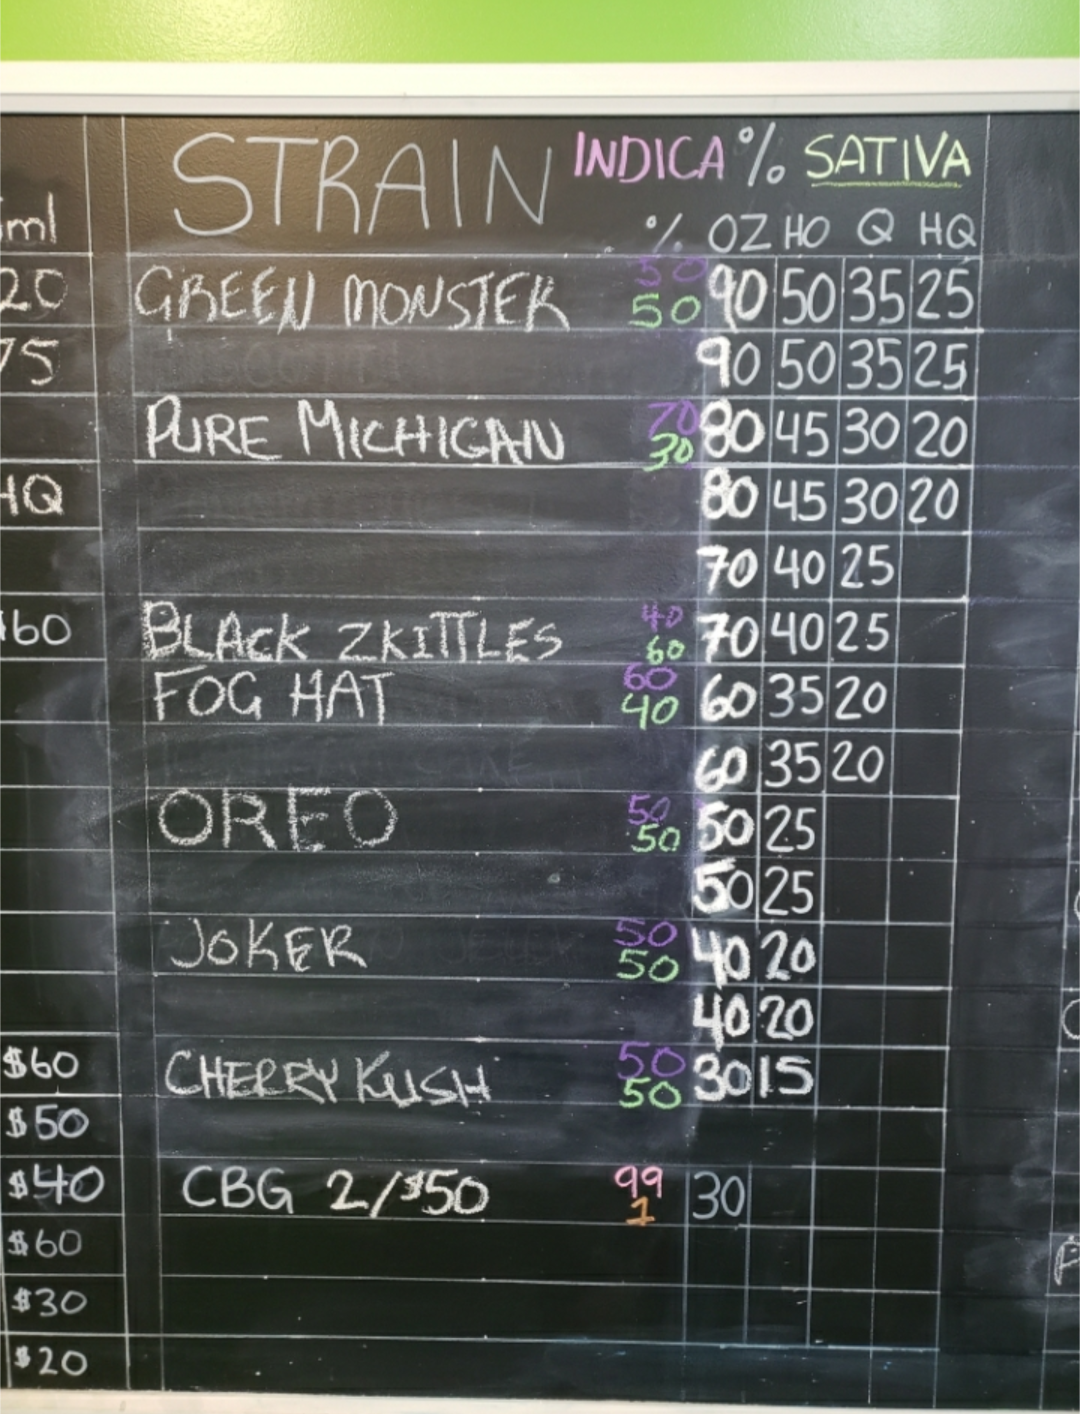 STRAIN INDICA % SATIVA
ml % OZ HO Q HQ
20 GREEN MONSTER 50 50 90 50 35 25
75 90 50 35 25
PURE MICHIGAN 70 30 80 45 30 20
HQ 80 45 30 20
70 40 25
$60 BLACK ZKITTLES 40 60 70 40 25
FOG HAT 60 40 60 35 20
60 35 20
OREO 50 50 50 25
50 25
JOKER 50 50 40 20
40 20
$60 CHERRY KUSH 50 50 30 15
$50
$40 CBG 2/$50 99 1 30
$60
$30
$20